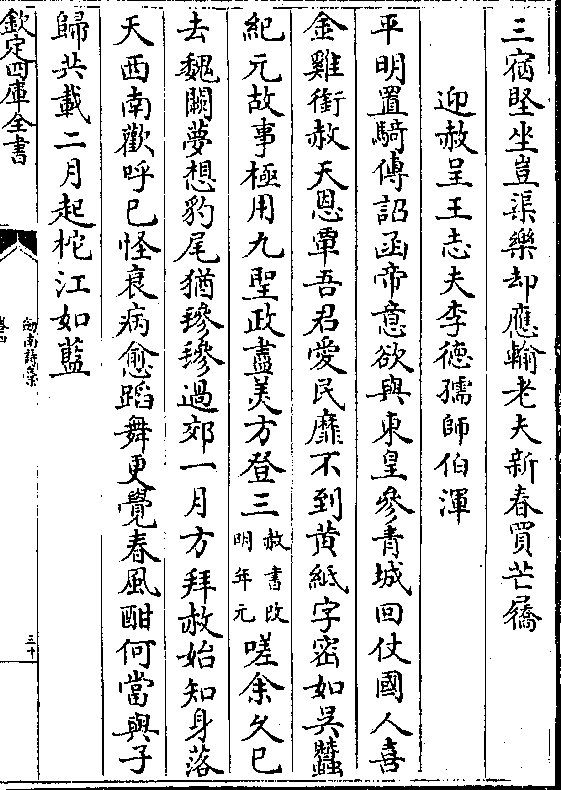 三宿堅坐豈渠樂却應輸老夫新春買芒屩
迎赦呈王志夫李德孺師伯渾
平明置騎傳詔函帝意欲與東皇參青城回仗國人喜
金雞銜赦天恩覃吾君愛民靡不到黄紙字密如吴蠶
紀元故事極用九聖政盡美方登三赦書改明年元嗟余久已
去魏闕夢想豹尾猶㲯㲯過郊一月方拜赦始知身落
天西南歡呼已怪衰病愈蹈舞更覺春風酣何當與子
歸共載二月起柂江如藍
欽定四庫全書
劍南詩藁
卷四
三十